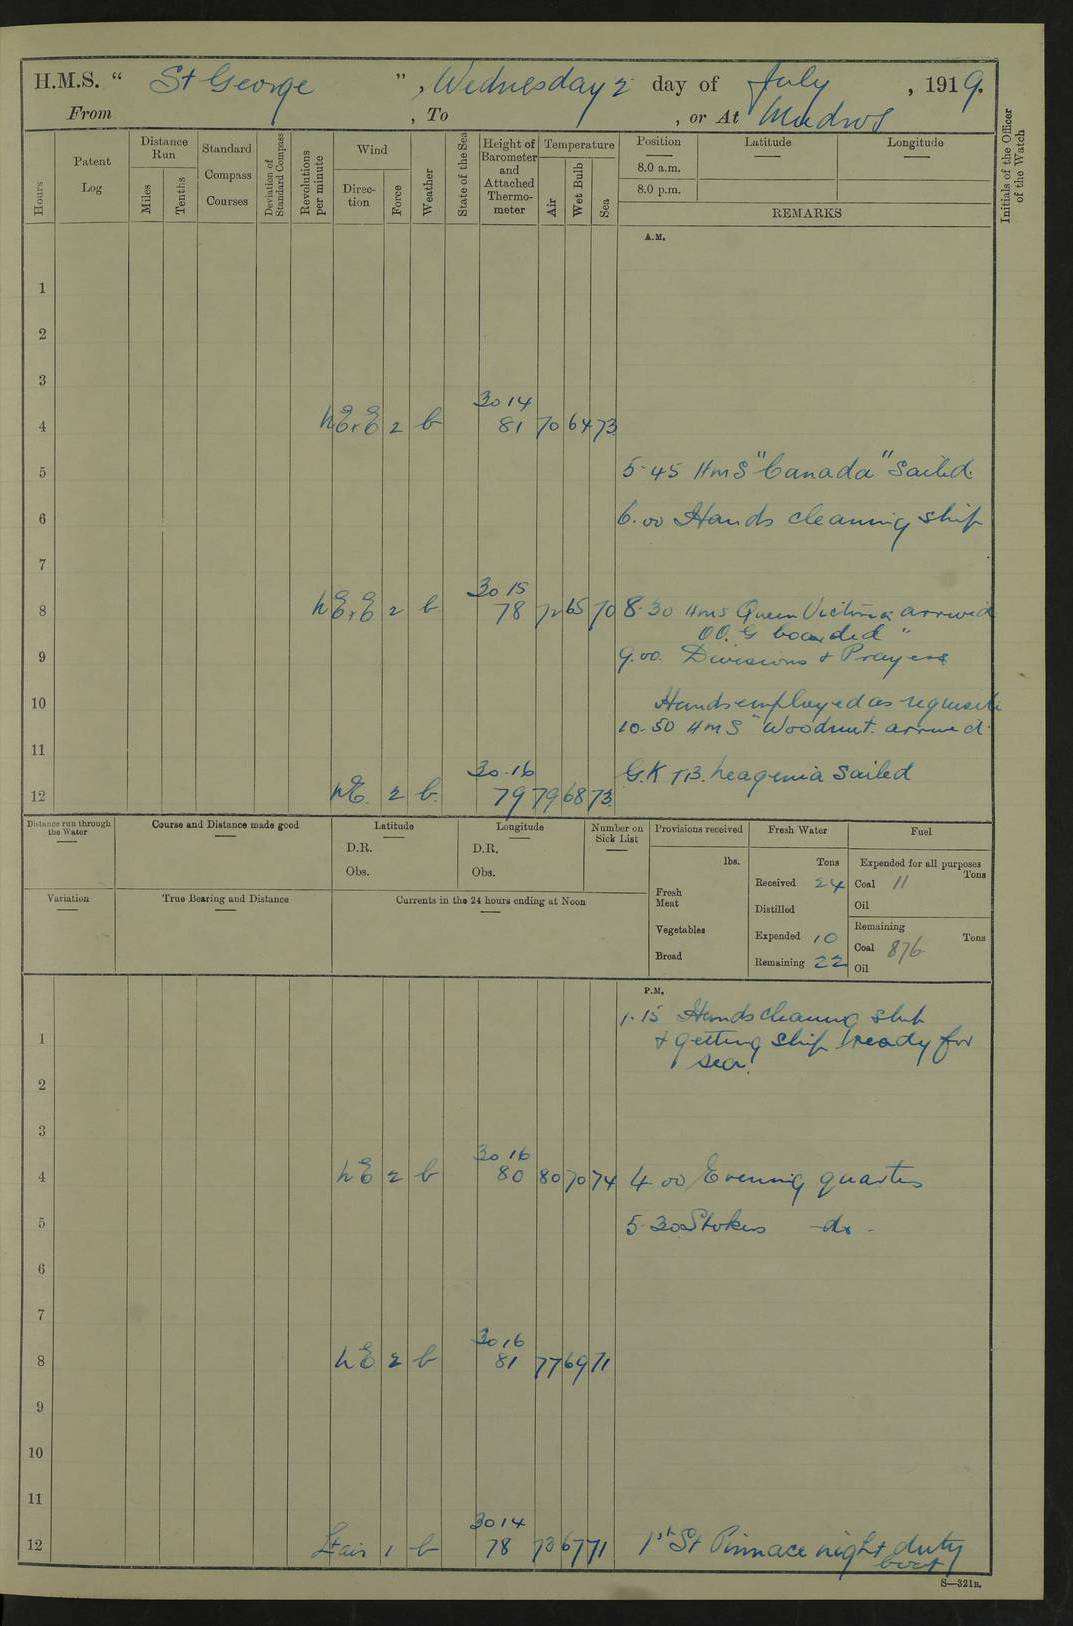 H.M.S. “ St George ”, Wednesday 2 day of July, 1919.
From , To , or At Mudros
Hours
Patent Log
Distance Run
Miles
Tenths
Standard Compass Courses
Deviation of Standard Compass
Revolutions per minute
Wind
Direction
Force
Weather
State of the Sea
Height of Barometer and Attached Thermometer
Temperature
Air
Wet Bulb
Sea
Position
8.0 a.m.
8.0 p.m.
Latitude
Longitude
REMARKS
Initials of the Officer of the Watch
A.M.
1
2
3
30 14
4 NE.E 2 b 81 70 64 73
5 5.45 HMS "Canada" Sailed.
6 6.00 Hands cleaning ship
7
30 15
8 NE.E 2 b 78 72 65 70 8.30 HMS Queen Victoria arrived
OO. G boarded "
9 9.00 Divisions & Prayers
10 Hands employed as requisite
10.50 HMS "Woodnut. arrived.
11
30.16 G.K TB. Sailed
12 NE. 2 b. 79 79 68 73.
Distance run through the Water
Course and Distance made good
Latitude
D.R.
Obs.
Longitude
D.R.
Obs.
Number on Sick List
Provisions received
lbs.
Fresh Meat
Vegetables
Bread
Fresh Water
Tons
Received 24
Distilled
Expended 10
Remaining 22
Fuel
Expended for all purposes
Tons
Coal 11
Oil
Remaining
Tons
Coal 876
Oil
Variation
True Bearing and Distance
Currents in the 24 hours ending at Noon
P.M.
1.15 Hands cleaning ship
1 & getting ship ready for
sea.
2
3
30 16
4 NE 2 b 80 80 70 74 4 00 Evening quarters
5 5.30 Stokers do.
6
7
30 16
8 NE 2 b 81 77 69 71
9
10
11
30 14
12 Lt airs 1 b 78 73 67 71 1st St Pinnace night duty
boat
S—321B.